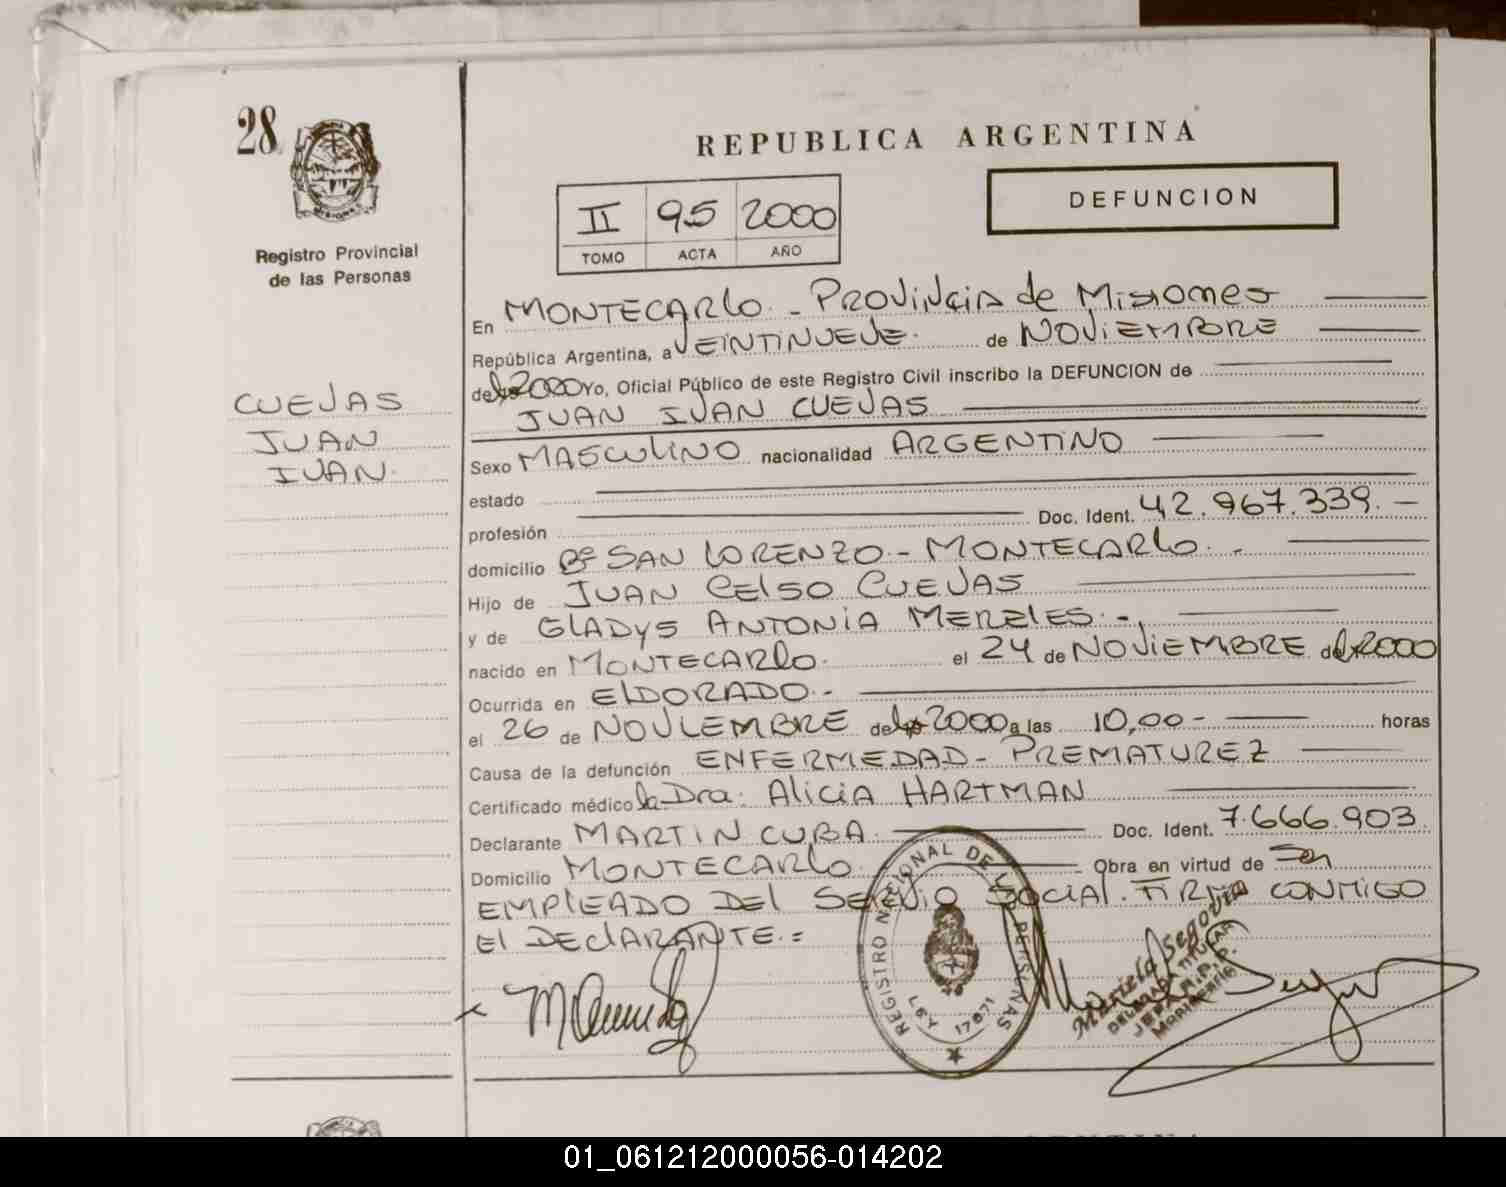 28
REPUBLICA ARGENTINA
DEFUNCION
II 95 2000
TOMO ACTA AÑO
Registro Provincial
de las Personas
CUEVAS
JUAN
IVAN.
En MONTECARLO. - PROVINCIA de MISIONES
República Argentina, a VEINTINUEVE. de NOVIEMBRE
del 2000 Yo, Oficial Público de este Registro Civil inscribo la DEFUNCION de
JUAN IVAN CUEVAS
Sexo MASCULINO nacionalidad ARGENTINO
estado
profesión Doc. Ident. 42.967.339. -
domicilio Bº SAN LORENZO - MONTECARLO. -
Hijo de JUAN CELSO CUEVAS
y de GLADYS ANTONIA MERELES. -
nacido en MONTECARLO. el 24 de NOVIEMBRE del 2000
Ocurrida en ELDORADO. -
el 26 de NOVIEMBRE del 2000 a las 10,00 - horas
Causa de la defunción ENFERMEDAD - PREMATUREZ
Certificado médico la Dra: ALICIA HARTMAN
Declarante MARTIN CUBA. Doc. Ident. 7.666.903
Domicilio MONTECARLO. Obra en virtud de Ser
EMPLEADO DEL SERVIO SOCIAL. FIRMA CONMIGO
El DEClARANTE. =
REGISTRO NACIONAL DE LAS PERSONAS
LEY 17671
Mariela Segovia
DELEGADA TITULAR
Montecarlo
01_061212000056-014202